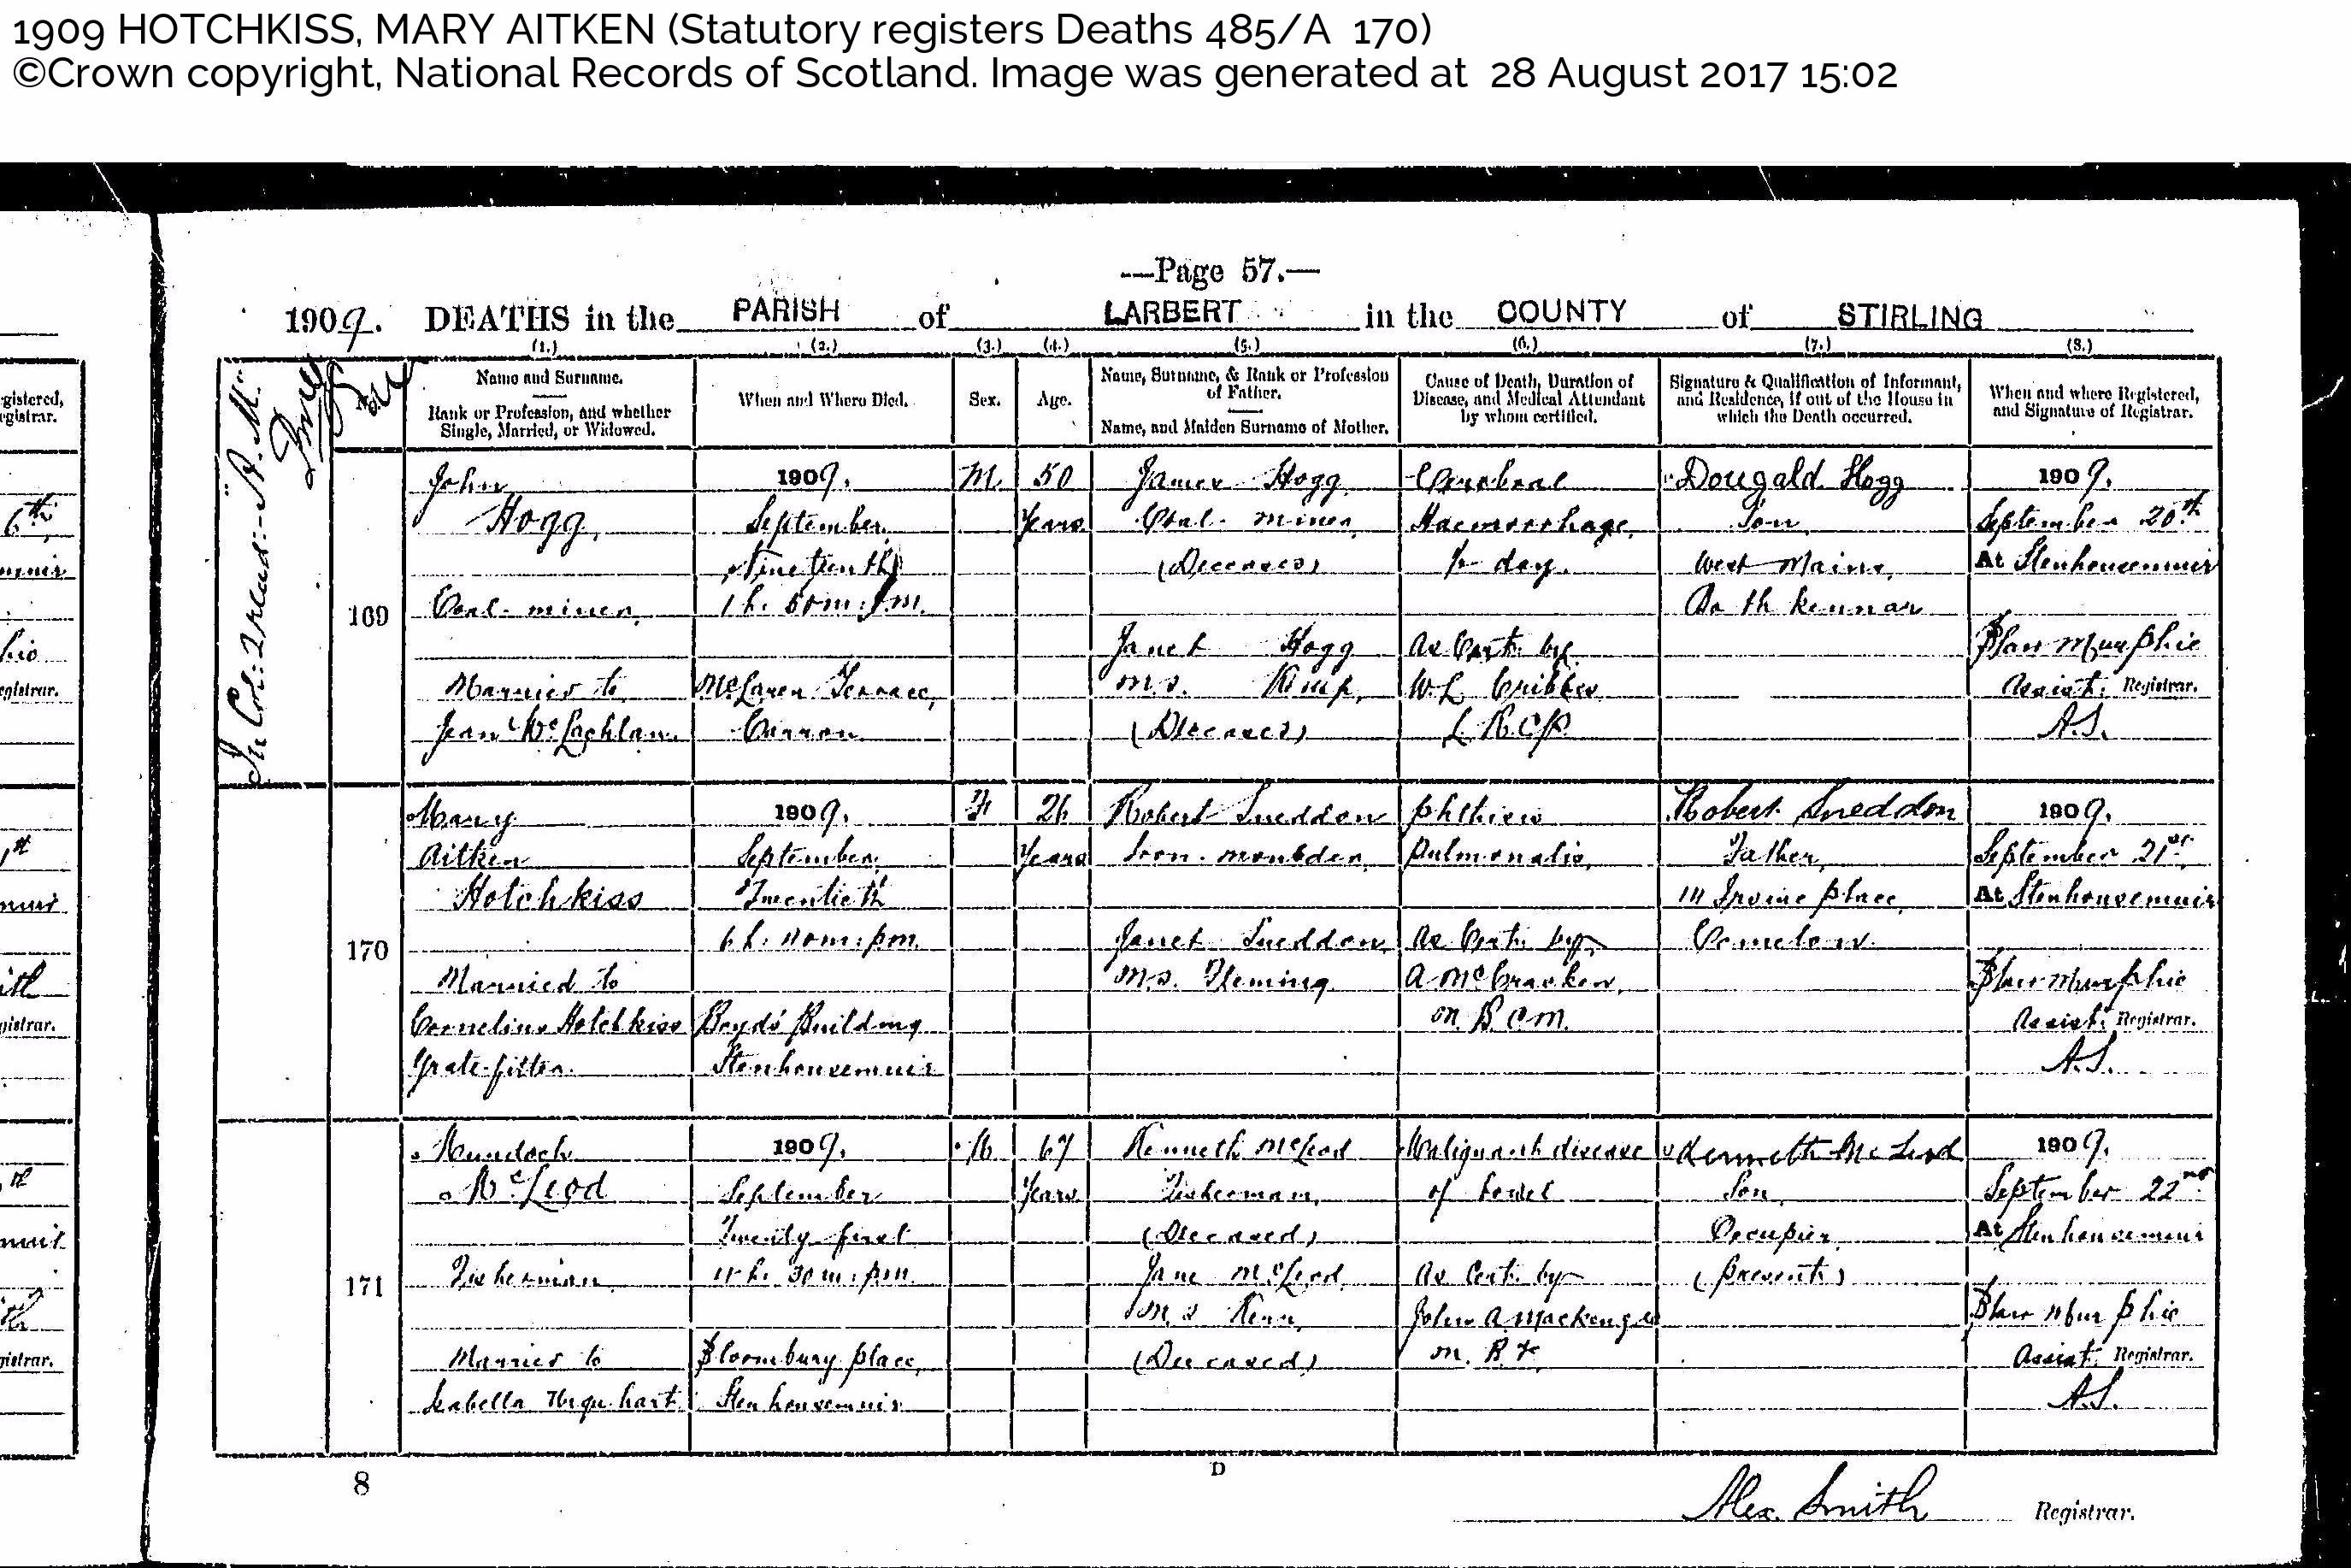 1909 HOTCHKISS, MARY AITKEN (Statutory registers Deaths 485/A 170)
©Crown copyright, National Records of Scotland. Image was generated at 28 August 2017 15:02
—Page 57.—
1909. DEATHS in the PARISH of LARBERT in the COUNTY of STIRLING
(1.) (2.) (3.) (4.) (5.) (6.) (7.) (8.)
No.
Name and Surname.
Rank or Profession, and whether
Single, Married, or Widowed.
When and Where Died.
Sex.
Age.
Name, Surname, & Rank or Profession
of Father.
Name, and Maiden Surname of Mother.
Cause of Death, Duration of
Disease, and Medical Attendant
by whom certified.
Signature & Qualification of Informant,
and Residence, if out of the House in
which the Death occurred.
When and where Registered,
and Signature of Registrar.
In Col: 2 read:- A.M.
169
John
Hogg,
Coal-miner,
Married to
Jean McLachlan.
1909.
September
Nineteenth
1 h. 50 m: P.M.
McLaren Terrace,
Carron
M.
50
Years
James Hogg
Coal-miner,
(Deceased)
Janet Hogg
m.s. Kemp,
(Deceased)
Cerebral
Haemorrhage,
½ day.
As Cert. by
W.L. Cribbes
L.R.C.P.
Dougald Hogg
Son,
West Mains,
Bothkennar
1909.
September 20th
At Stenhousemuir
Murphie
Assist. Registrar.
A.S.
170
Mary
Aitken
Hotchkiss
Married to
Cornelius Hotchkiss
Grate-fitter.
1909.
September,
Twentieth
6 h. m: p.m.
Boyd's Building
Stenhousemuir
F
26
Years
Robert Sneddon
Iron-moulder,
Janet Sneddon,
m.s. Fleming
Phthisis
Pulmonalis,
As Cert. by
A McCracken,
M.B. C.M.
Robert Sneddon
Father,
Irvine Place,
Camelon.
1909.
September 21st,
At Stenhousemuir
Murphie
Assist. Registrar.
A.S.
171
Murdoch
McLeod
Fisherman,
Married to
Isabella Urquhart
1909.
September
Twenty-first
h. 30 m: p.m.
Bloombury Place,
Stenhousemuir
M.
67
Years
Kenneth McLeod
Fisherman,
(Deceased)
Jane McLeod
m.s.
(Deceased)
Malignant disease
of bowel
As Cert. by
John A Mackenzie
M.B.
Kenneth McLeod
Son,
Occupier,
(Present)
1909.
September 22nd
At Stenhousemuir
Murphie
Assist. Registrar.
A.S.
8
D
Alex. Smith Registrar.